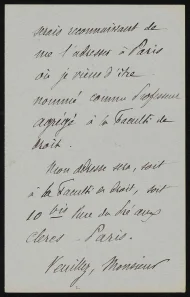 serais reconnaissant de
me l'adresser à Paris
où je viens d'être
nommé comme Professeur
agrégé à la Faculté de
droit.
Mon adresse sera, soit
à la Faculté de droit, soit
10 bis Rue du Pré aux
Clercs - Paris.
Veuillez, Monsieur